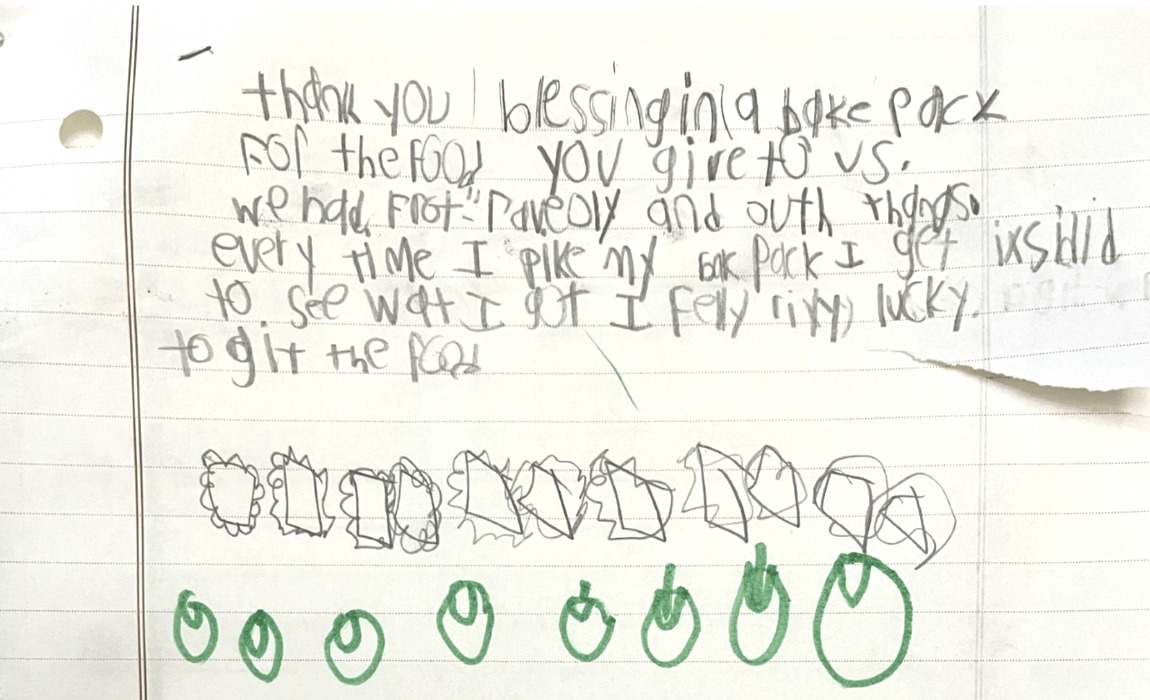 thank you blessing in a bake pack
For the Food you give to us.
we had Frot" Raveoly and outh thangs.
every time I pike my bak pack I get ixsidid
to see wat I got I Felly rivvy lucky.
to git the Food